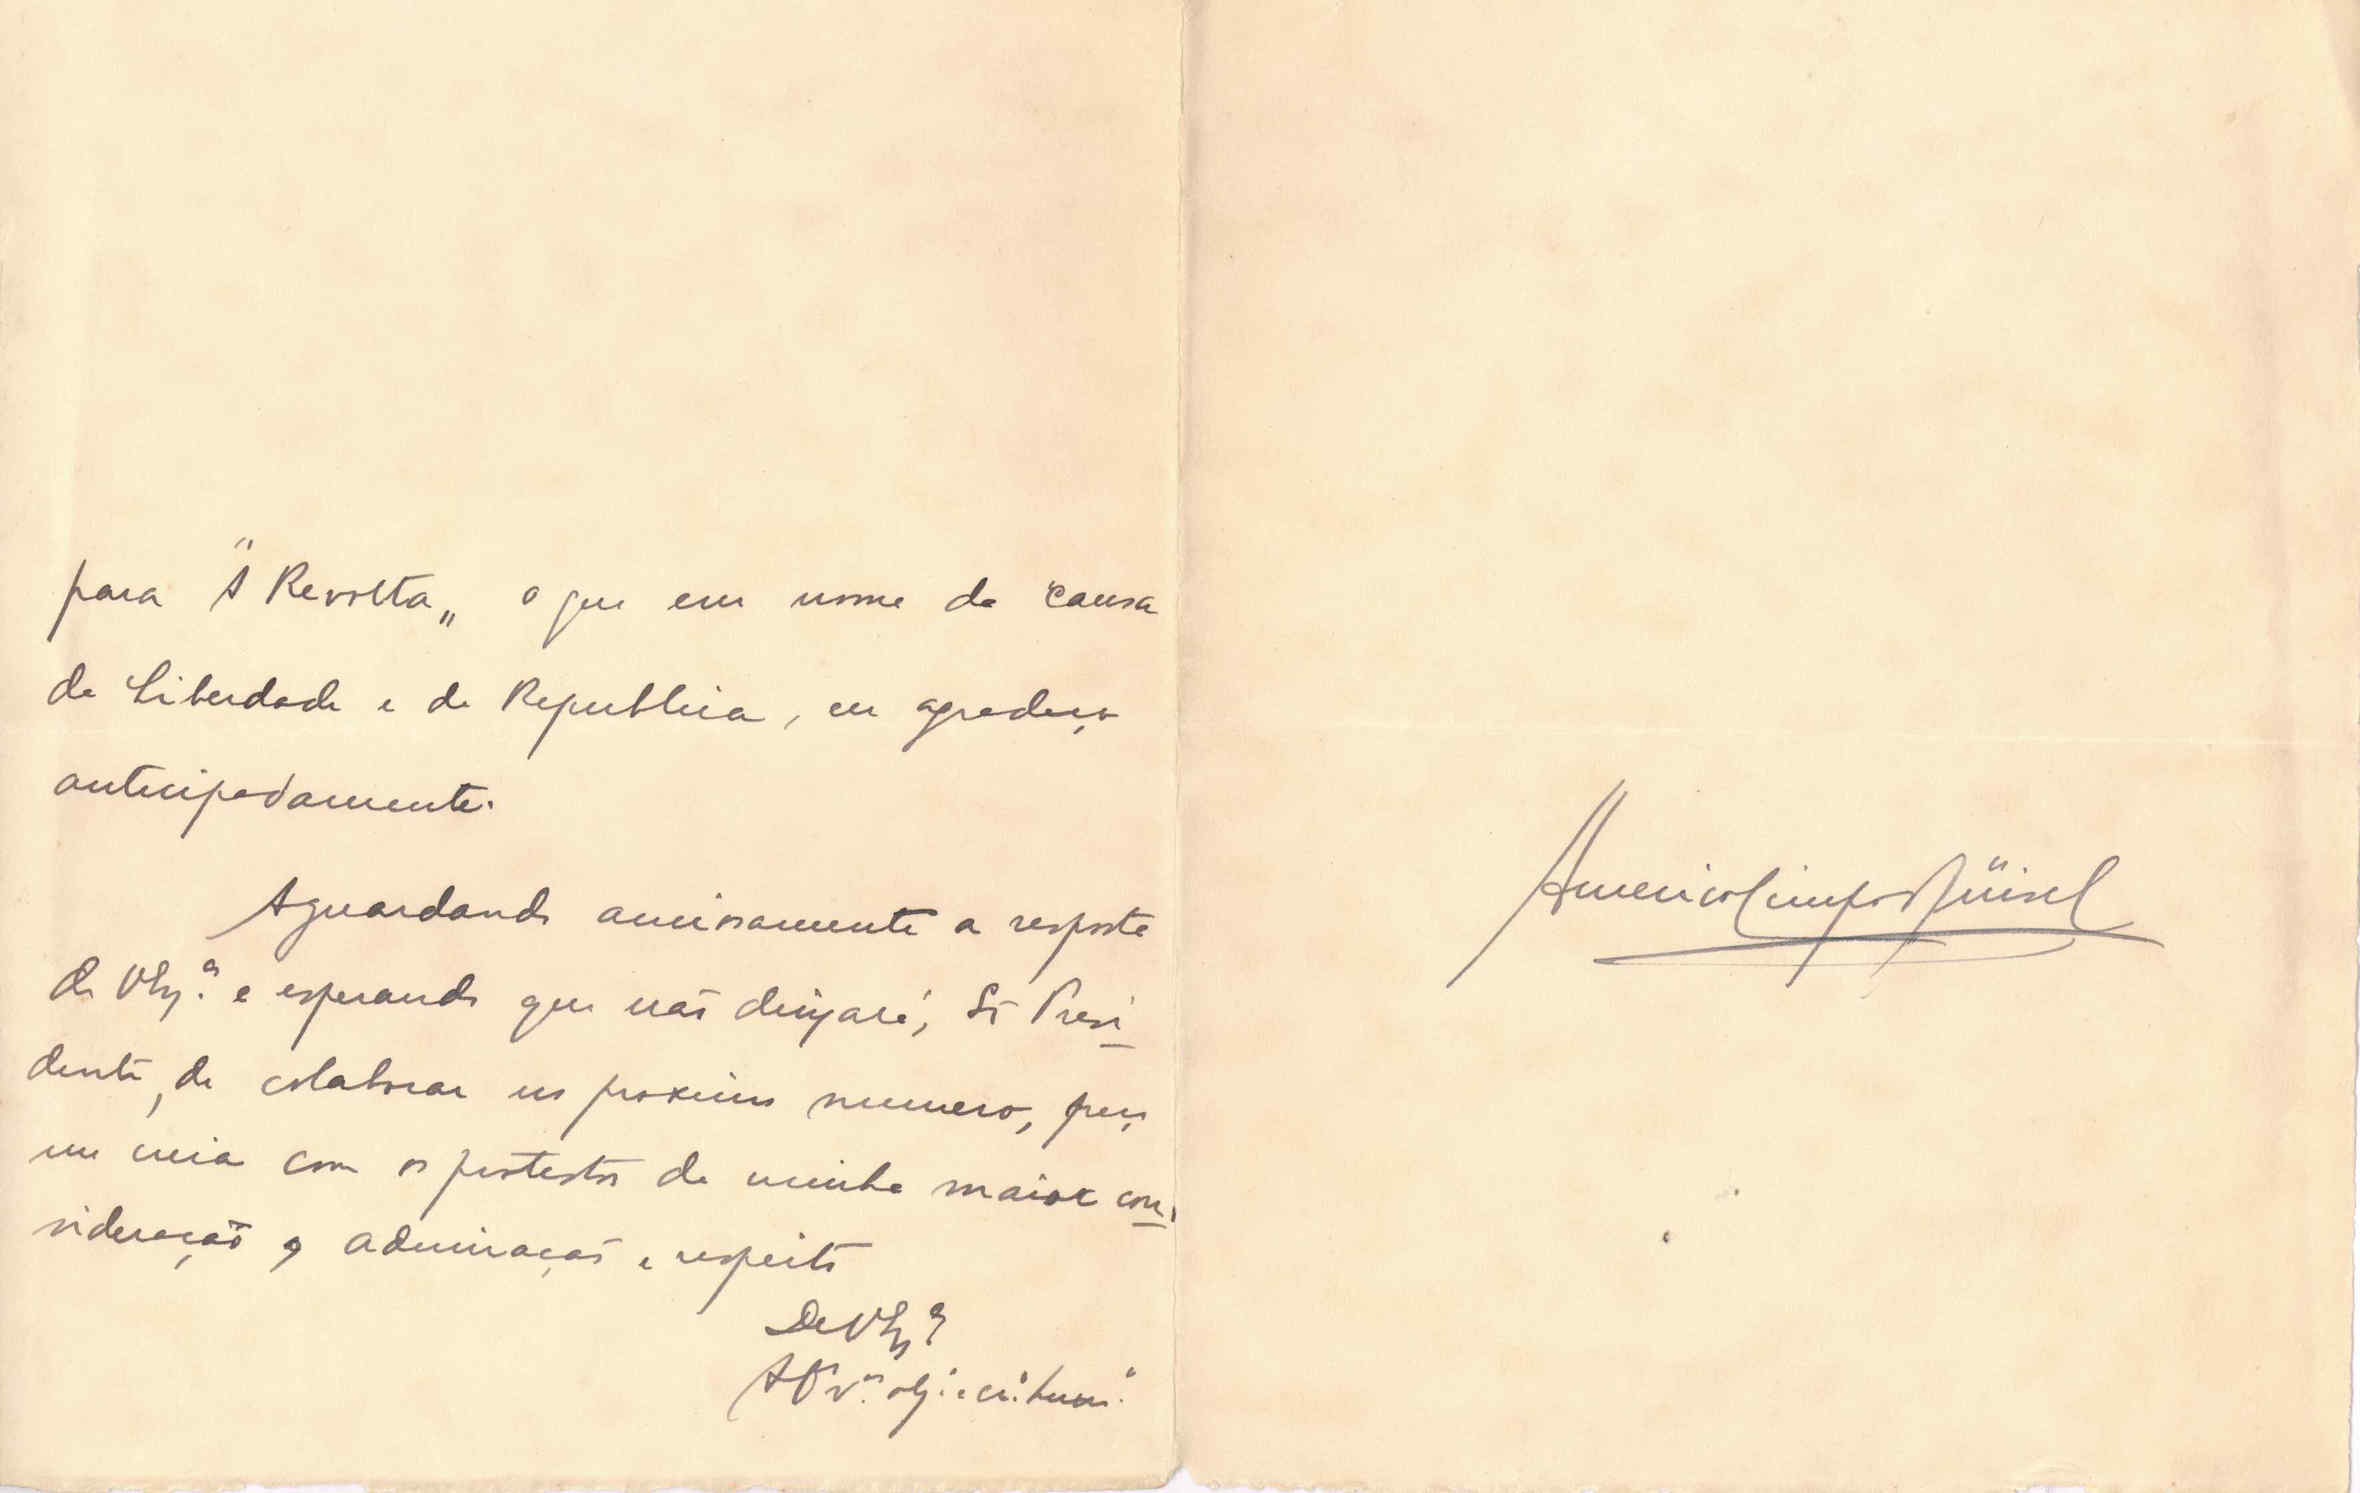 para "A Revolta„ o que em nome da causa
da Liberdade e da Republica, eu agradeço
antecipadamente.
Aguardando anciosamente a resposta
de V. Ex.ª e esperando que não deixará, Sr Presi-
dente, de colaborar no proximo numero,
me creia com os protestos da minha maior con-
sideração, admiração e respeito
De V. Ex.ª
At.º V.or obg.º e cr.º
Americo Limpo Büisel